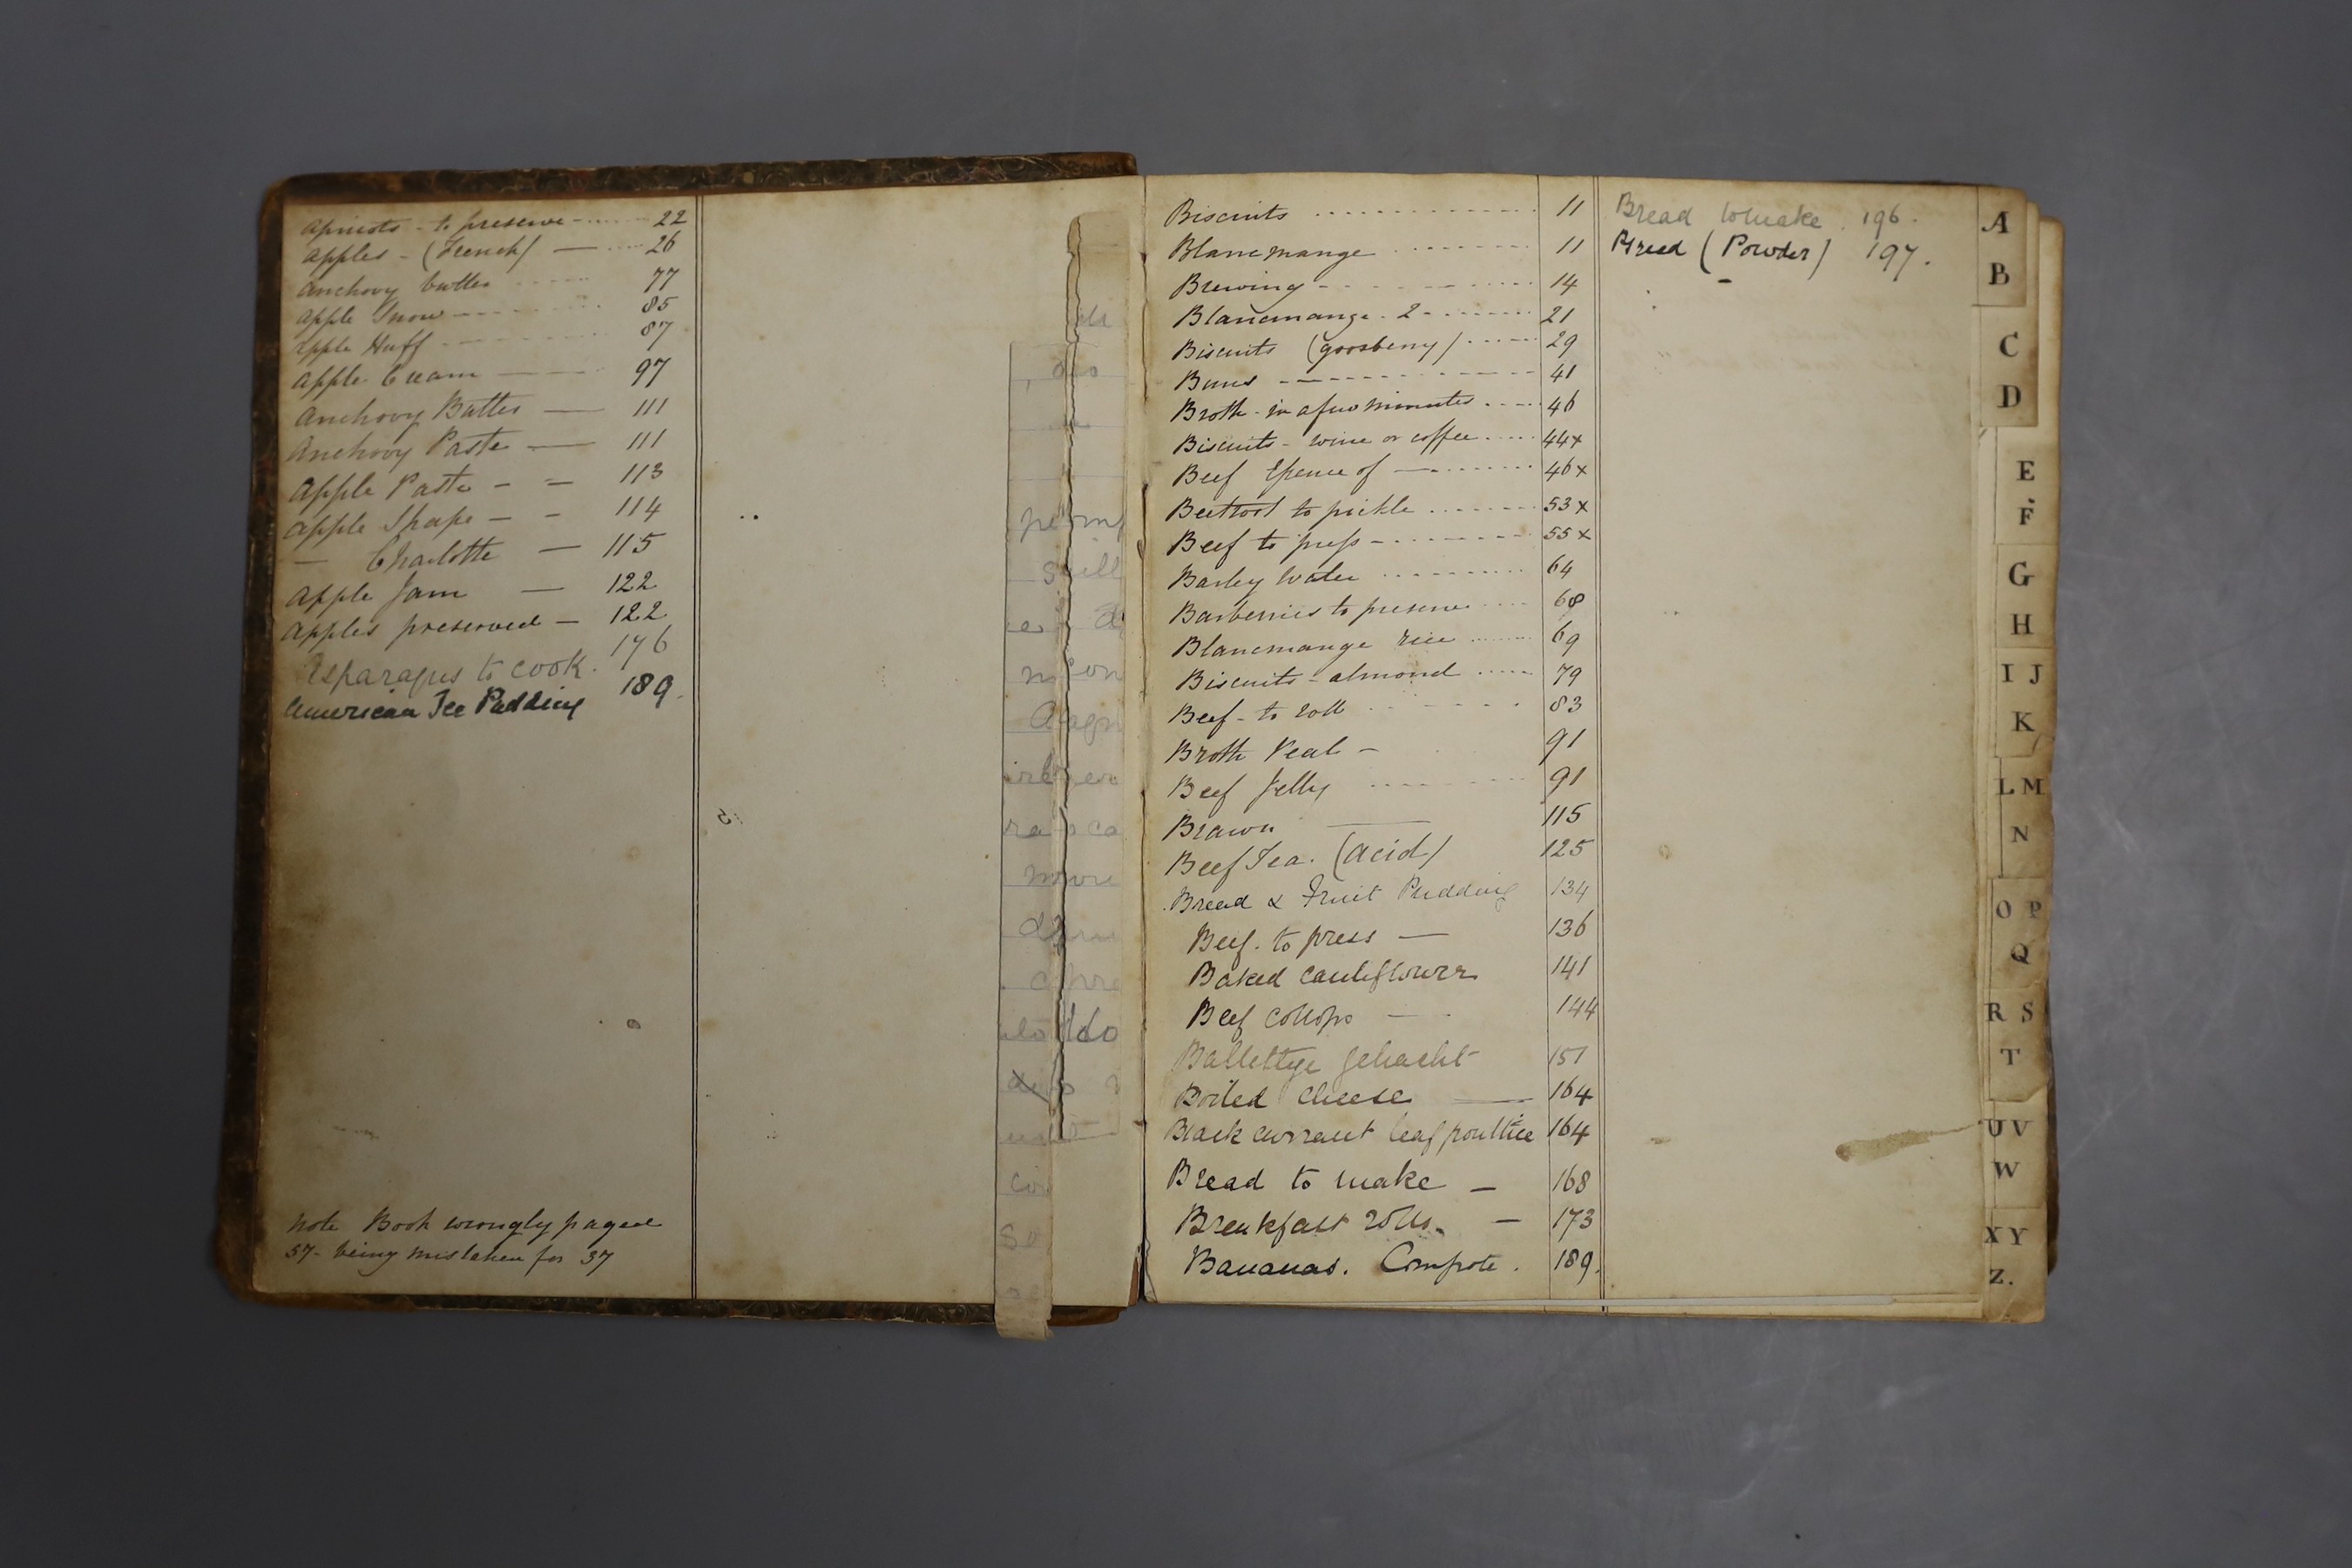 Apricots - to preserve - 22
Apples - (French) — 26
Anchovy butter 77
Apple Snow 85
Apple Huff 87
Apple Cream — 97
Anchovy Butter — 111
Anchovy Paste — 111
Apple Paste - - 113
Apple Shape - - 114
— Charlotte — 115
Apple Jam — 122
Apples preserved - 122
Asparagus to cook. 176
American Ice Pudding 189.
Note Book wrongly paged
57- being mistaken for 37
Biscuits 11
Blancmange 11
Brewing 14
Blancmange - 2 21
Biscuits (goosberry) 29
Buns 41
Broth - in a few minutes 46
Biscuits - wine or coffee 44x
Beef Essence of — 46x
Beettoot to pickle 53x
Beef to press 55x
Barley Water 64
Barberries to preserve 68
Blancmange rice 69
Biscuits - almond 79
Beef - to roll 83
Broth Veal - 91
Beef Jelly 91
Brawn — 115
Beef Tea. (Acid) 125
Bread & Fruit Pudding 134
Beef. to press — 136
Baked Cauliflower 141
Beef Collops — 144
Ballettye gehacht 151
Boiled Cheese — 164
Black currant leaf poultice 164
Bread to make — 168
Breakfast rolls. — 173
Bananas. Compote. 189.
Bread to make. 196.
Bread (Powder) 197.
A
B
C
D
E
F
G
H
I J
K
L M
N
O P
Q
R S
T
U V
W
X Y
Z.